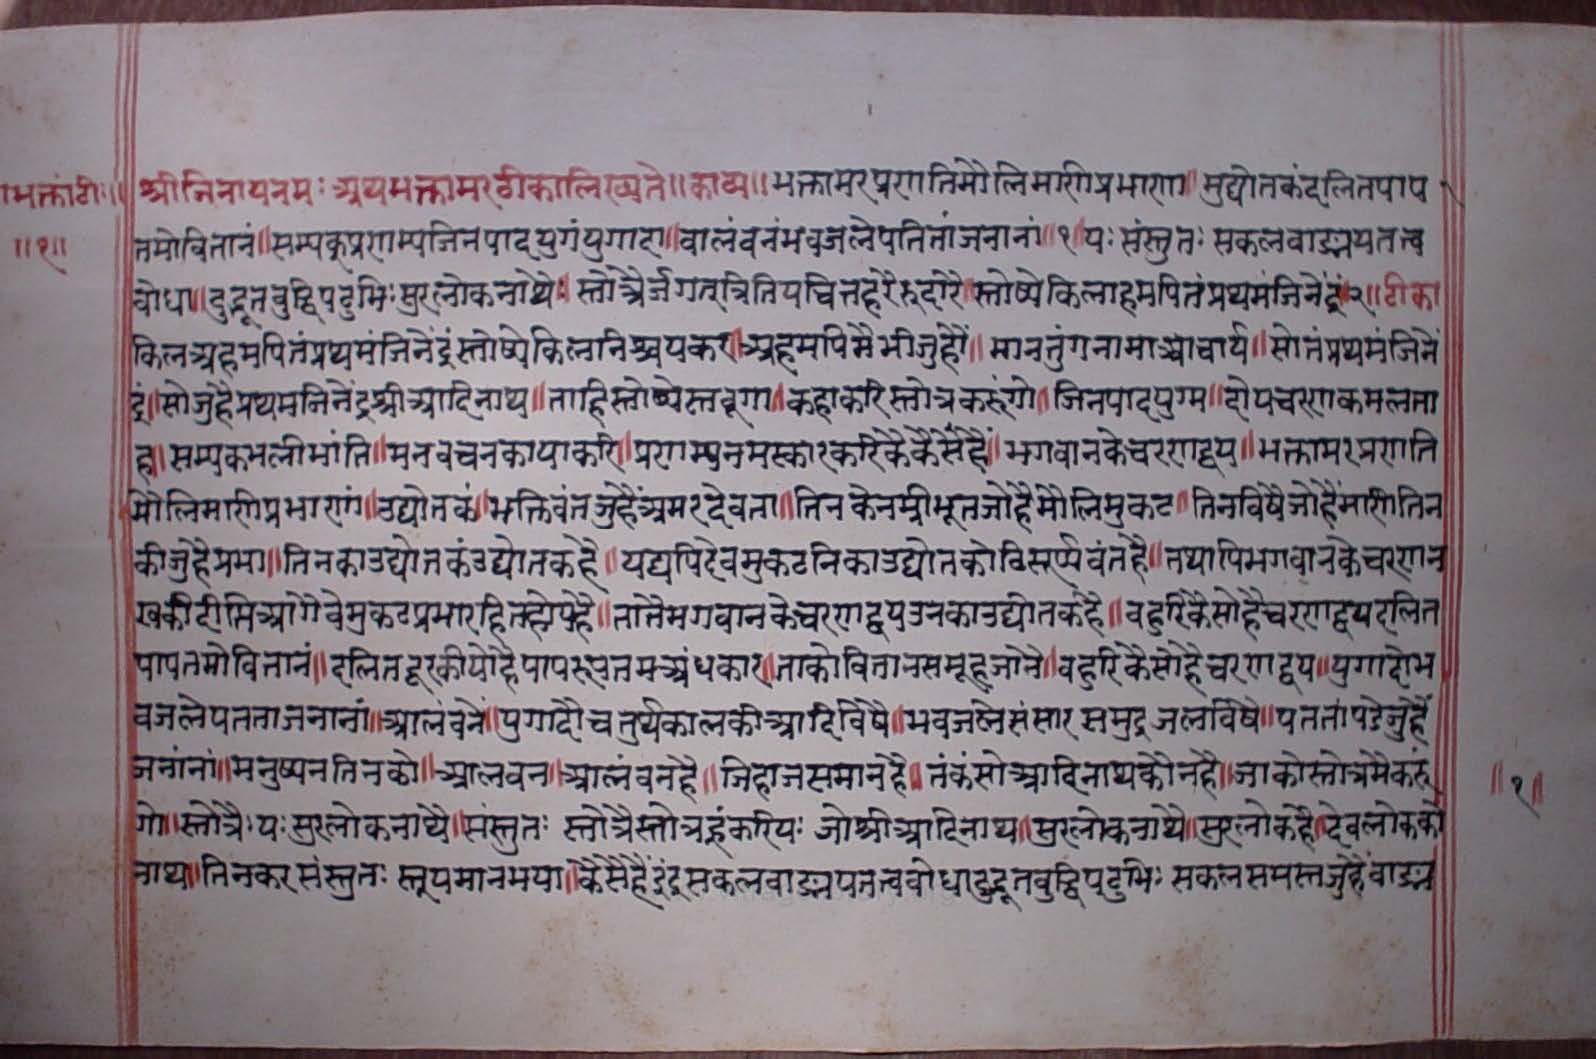 भक्तांटीः॥ श्रीजिनायनमः अथभक्तामरटीकालिख्यते॥काव्य॥भक्तामरप्रणतिमौलिमणिप्रभाणा॥मुद्योतकंदलितपाप
॥१॥ तमोवितानं॥सम्यक्प्रणाम्यजिनपादयुगंयुगादा॥वालंवनंभवजलेपतितांजनानां॥१॥यःसंस्तुतःसकलवाङ्मयतत्त्व
वोधा॥दुद्भूतवुद्धिपटुभिःसुरलोकनाथैः॥स्तोत्रैर्जगत्त्रितियचित्तहरैरुदारै॥स्तोष्येकिलाहमपितंप्रथमंजिनेंद्रं॥२॥टीका
किलअहमपितंप्रथमंजिनेंद्रंस्तोष्येकिलनिश्चयकर॥अहमपिमैभीजुहौं॥मानतुंगनामाआचार्य॥सोतंप्रथमंजिनें
द्रं॥सोजुहैप्रथमजिनेंद्रश्रीआदिनाथ॥ताहिस्तोष्येस्तवूगा॥कहाकरिस्तोत्रकरूंगो॥जिनपादयुग्म॥दोयचरणकमलता
ह॥सम्यकभलीभांति॥मनवचनकायाकरि॥प्रणाम्यनमस्कारकरिकैकैसेंहैं॥भगवानकेचरणद्वय॥भक्तामरप्रणति
मौलिमणिप्रभाणां॥उद्योतकं॥भक्तिवंतजुहैंअमरदेवता॥तिनकेनम्रीभूतजोहैमौलिमुकट॥तिनविषैजोहैंमणितिन
कीजुहैप्रभा॥तिनकाउद्योतकंउद्योतकहै॥यद्यपिदेवमुकटनिकाउद्योतकोविस्तर्ण्यवंतहै॥तथापिभगवानकेचरणन
खकीदीप्तिआगैवेमुकटप्रभारहितहोयहै॥तातैभगवानकेचरणद्वयउनकाउद्योतकहै॥वहुरिकैसोहैचरणद्वयदलित
पापतमोवितानं॥दलितदूरकीयोहैपापरूपतमअंधकार॥ताकोवितानसमूहजाने॥वहुरिकैसोहैचरणद्वय॥युगादोभ
वजलेपततांजनानां॥आलंवनं॥युगादौचतुर्थकालकीआदिविषै॥भवजलेसंसारसमुद्रजलविषै॥पततांपडेजुहैं
जनांनां॥मनुष्यनतिनको॥आलवन॥आलंवनहै॥जिहाजसमानहै॥तंकंसोआदिनाथकौनहै॥जाकोस्तोत्रमैकरुं ॥१॥
गो॥स्तोत्रैःयःसुरलोकनाथै॥संस्तुतः स्तोत्रैस्तोत्रहंकरियः जोश्रीआदिनाथ॥सुरलोकनाथै॥सुरलोकहै॥देवलोकको
नाथ॥तिनकरसंस्तुतः स्तूयमानभया॥कैसेहैंइंद्रसकलवाङ्मयतत्त्ववोधादुद्भूतवुद्धिपटुभिः सकलसमस्तजुहैंवाङ्म